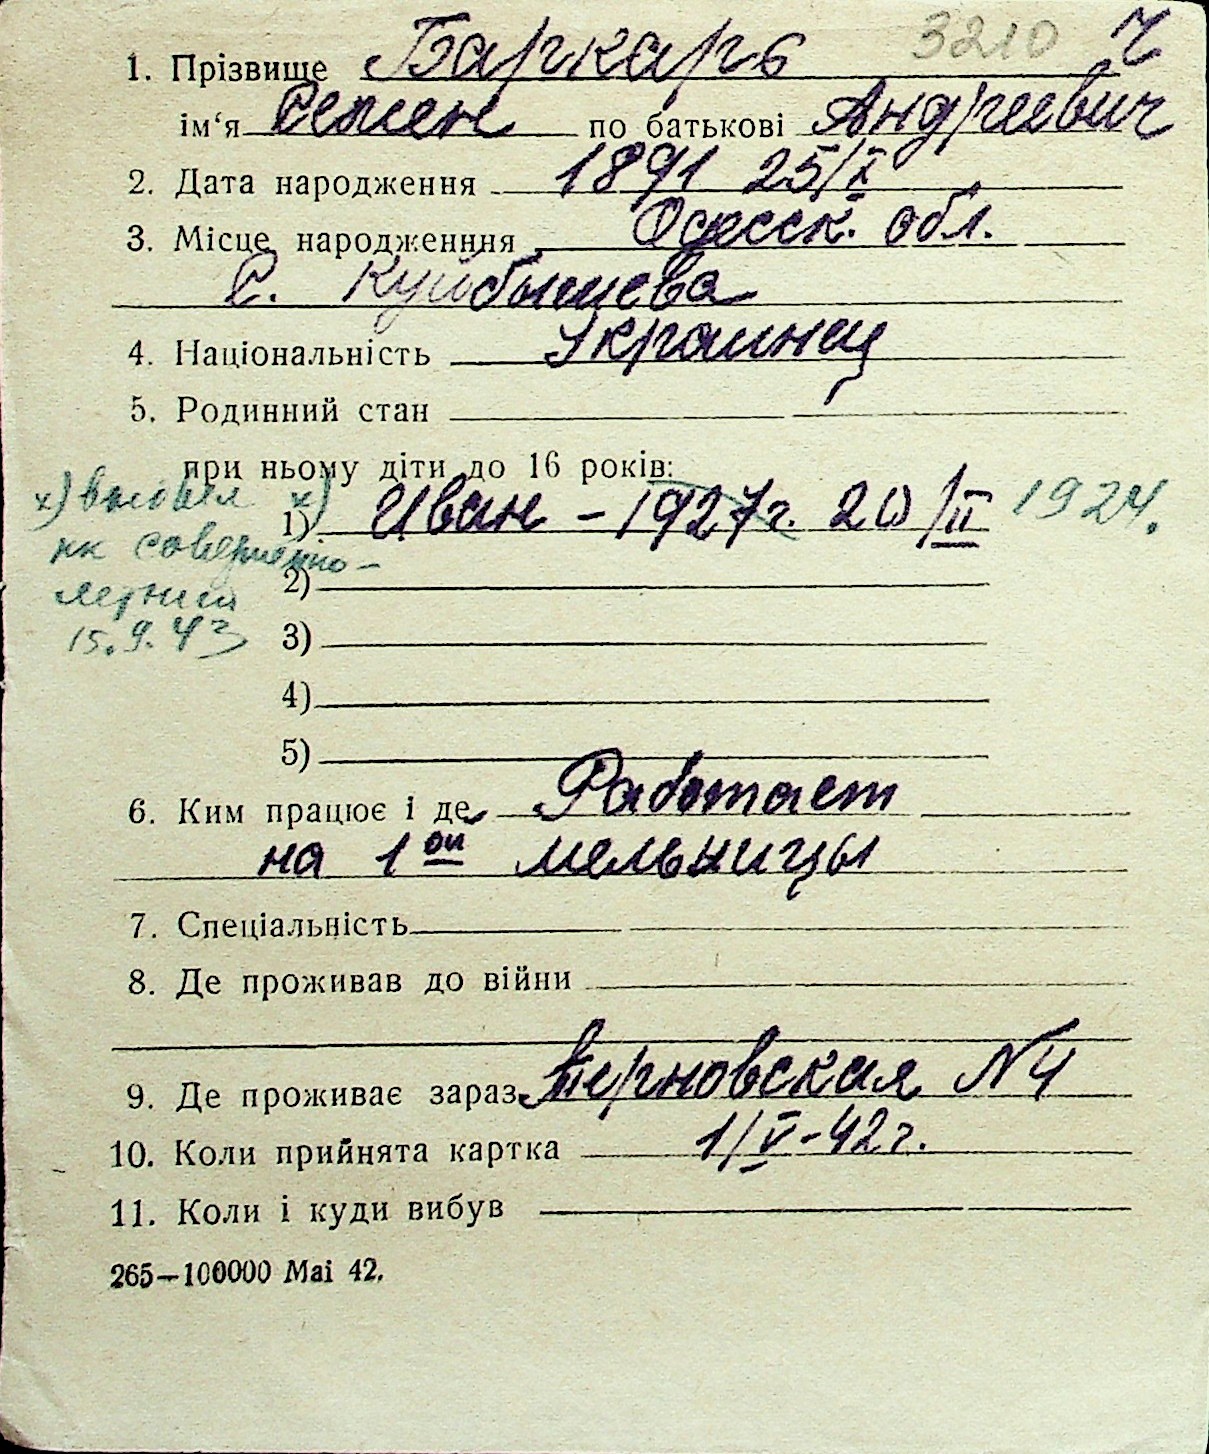 3210 Ч
1. Прізвище Баркарь
ім‘я Семен по батькові Андреевич
2. Дата народження 1891 25/X
3. Місце народженння Одесск. обл.
С. Куйбышева
4. Національність Украинец
5. Родинний стан
при ньому діти до 16 років:
х) выбыл х) 1) Иван - 1927г. 20/II 1924.
как совершенно-
2)
летний
15.9.43 3)
4)
5)
6. Ким працює і де Работает
на 1ой мельницы
7. Спеціальність
8. Де проживав до війни
9. Де проживає зараз Терновская N 4
10. Коли прийнята картка 1/V-42г.
11. Коли і куди вибув
265—100000 Mai 42.